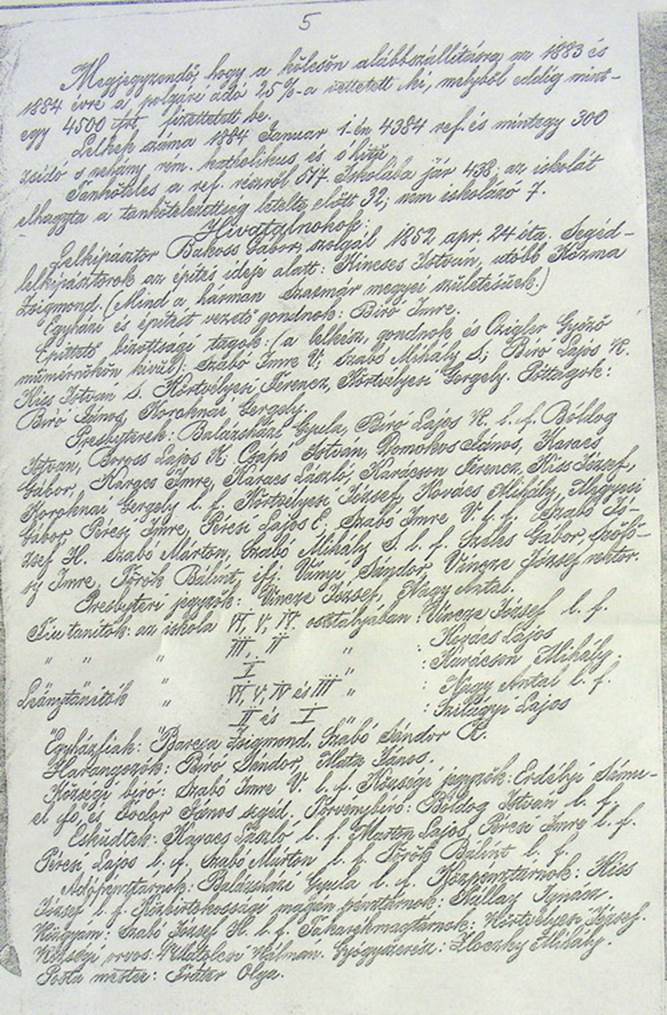 5
Megjegyzendő, hogy a kölcsön alábbszállítására az 1883 és
1884 évre a polgári adó 25%-a vettetett ki, melyből eddig mint-
egy 4500 frt. fizettetett be.
Lelkek száma 1884 Januar 1-én 4384 ref. és mintegy 300
zsidó s néhány róm. katholikus és óhitű.
Tanköteles a ref. részről 517 Iskolába jár 438; az iskolát
elhagyta a tankötelezettség letelte előtt 32; nem iskolázó 7.
Hivatalnokok:
Lelkipásztor Bakoss Gábor, szolgál 1852 apr. 24 óta. Segéd-
lelkipásztorok az építés ideje alatt: Kincses István, utóbb Kozma
Zsigmond. (Mind a hárman Szatmár megyei születésüek.)
Egyházi és építést vezető gondnok: Biró Imre.
Építtető bizottsági tagok: (a lelkész, gondnok és Czigler Győző
műmérnökön kívül): Szabó Imre V; Szabó Mihály S; Biró Lajos K.
Kiss István s. Körtvélyesi Ferencz, Körtvélyesi Gergely. Póttagok:
Biró János, Koroknai Gergely.
Presbyterek: Balásházi Gyula, Biró Lajos K. l. f. Bóldog
István, Boross Lajos K. Csapó István, Domokos János, Karacs
Gábor, Karacs Imre, Karacs László, Karácson Ferencz, Kiss József,
Koroknai Gergely l. f. Körtvélyesi József, Kovács Mihály,
Gábor, Pércsi Imre, Pércsi Lajos E; Szabó Imre V. l. f. Szabó Jó-
zsef H. Szabó Márton, Szabó Mihály S. l. f. Széles Gábor,
Imre, Török Bálint, ifj. Ványi Sándor, Vincze József rektor.
Presbyteri jegyzők: Vincze József, Nagy Antal.
Fiu tanítók: az iskola VI, V, IV osztályában: Vincze József l. f.
" " " III, II " : Kovács Lajos
I " : Karácson Mihály.
Leánytanítók " VI, V, IV és III " : Nagy Antal l. f.
II és I " : Szilágyi Lajos
Egyházfiak: Barcsa Zsigmond, Szabó Sándor K.
Harangozók: Biró Sándor, János.
Községi biró: Szabó Imre V. l. f. Községi jegyzők: Erdélyi Sámu-
el fő, és Fodor János segéd. Törvénybiró: Bóldog István l. f.
Esküdtek: Karacs László l. f. Marton Lajos, Pércsi Imre l. f.
Pércsi Lajos l. f. Szabó Márton l. f. Török Bálint l. f.
Adópénztárnok: Balásházi Gyula l. f. Közpénztárnok: Kiss
József l. f. Közbirtokossági magán pénztárnok: Kállay Ignácz.
Közgyám: Szabó József H. l. f. Takarékmagtárnok: Körtvélyesi József.
Községi orvos: Matolcsi Kálmán. Gyógyszerész: Mihály.
Posta mester: Fráter Olga.